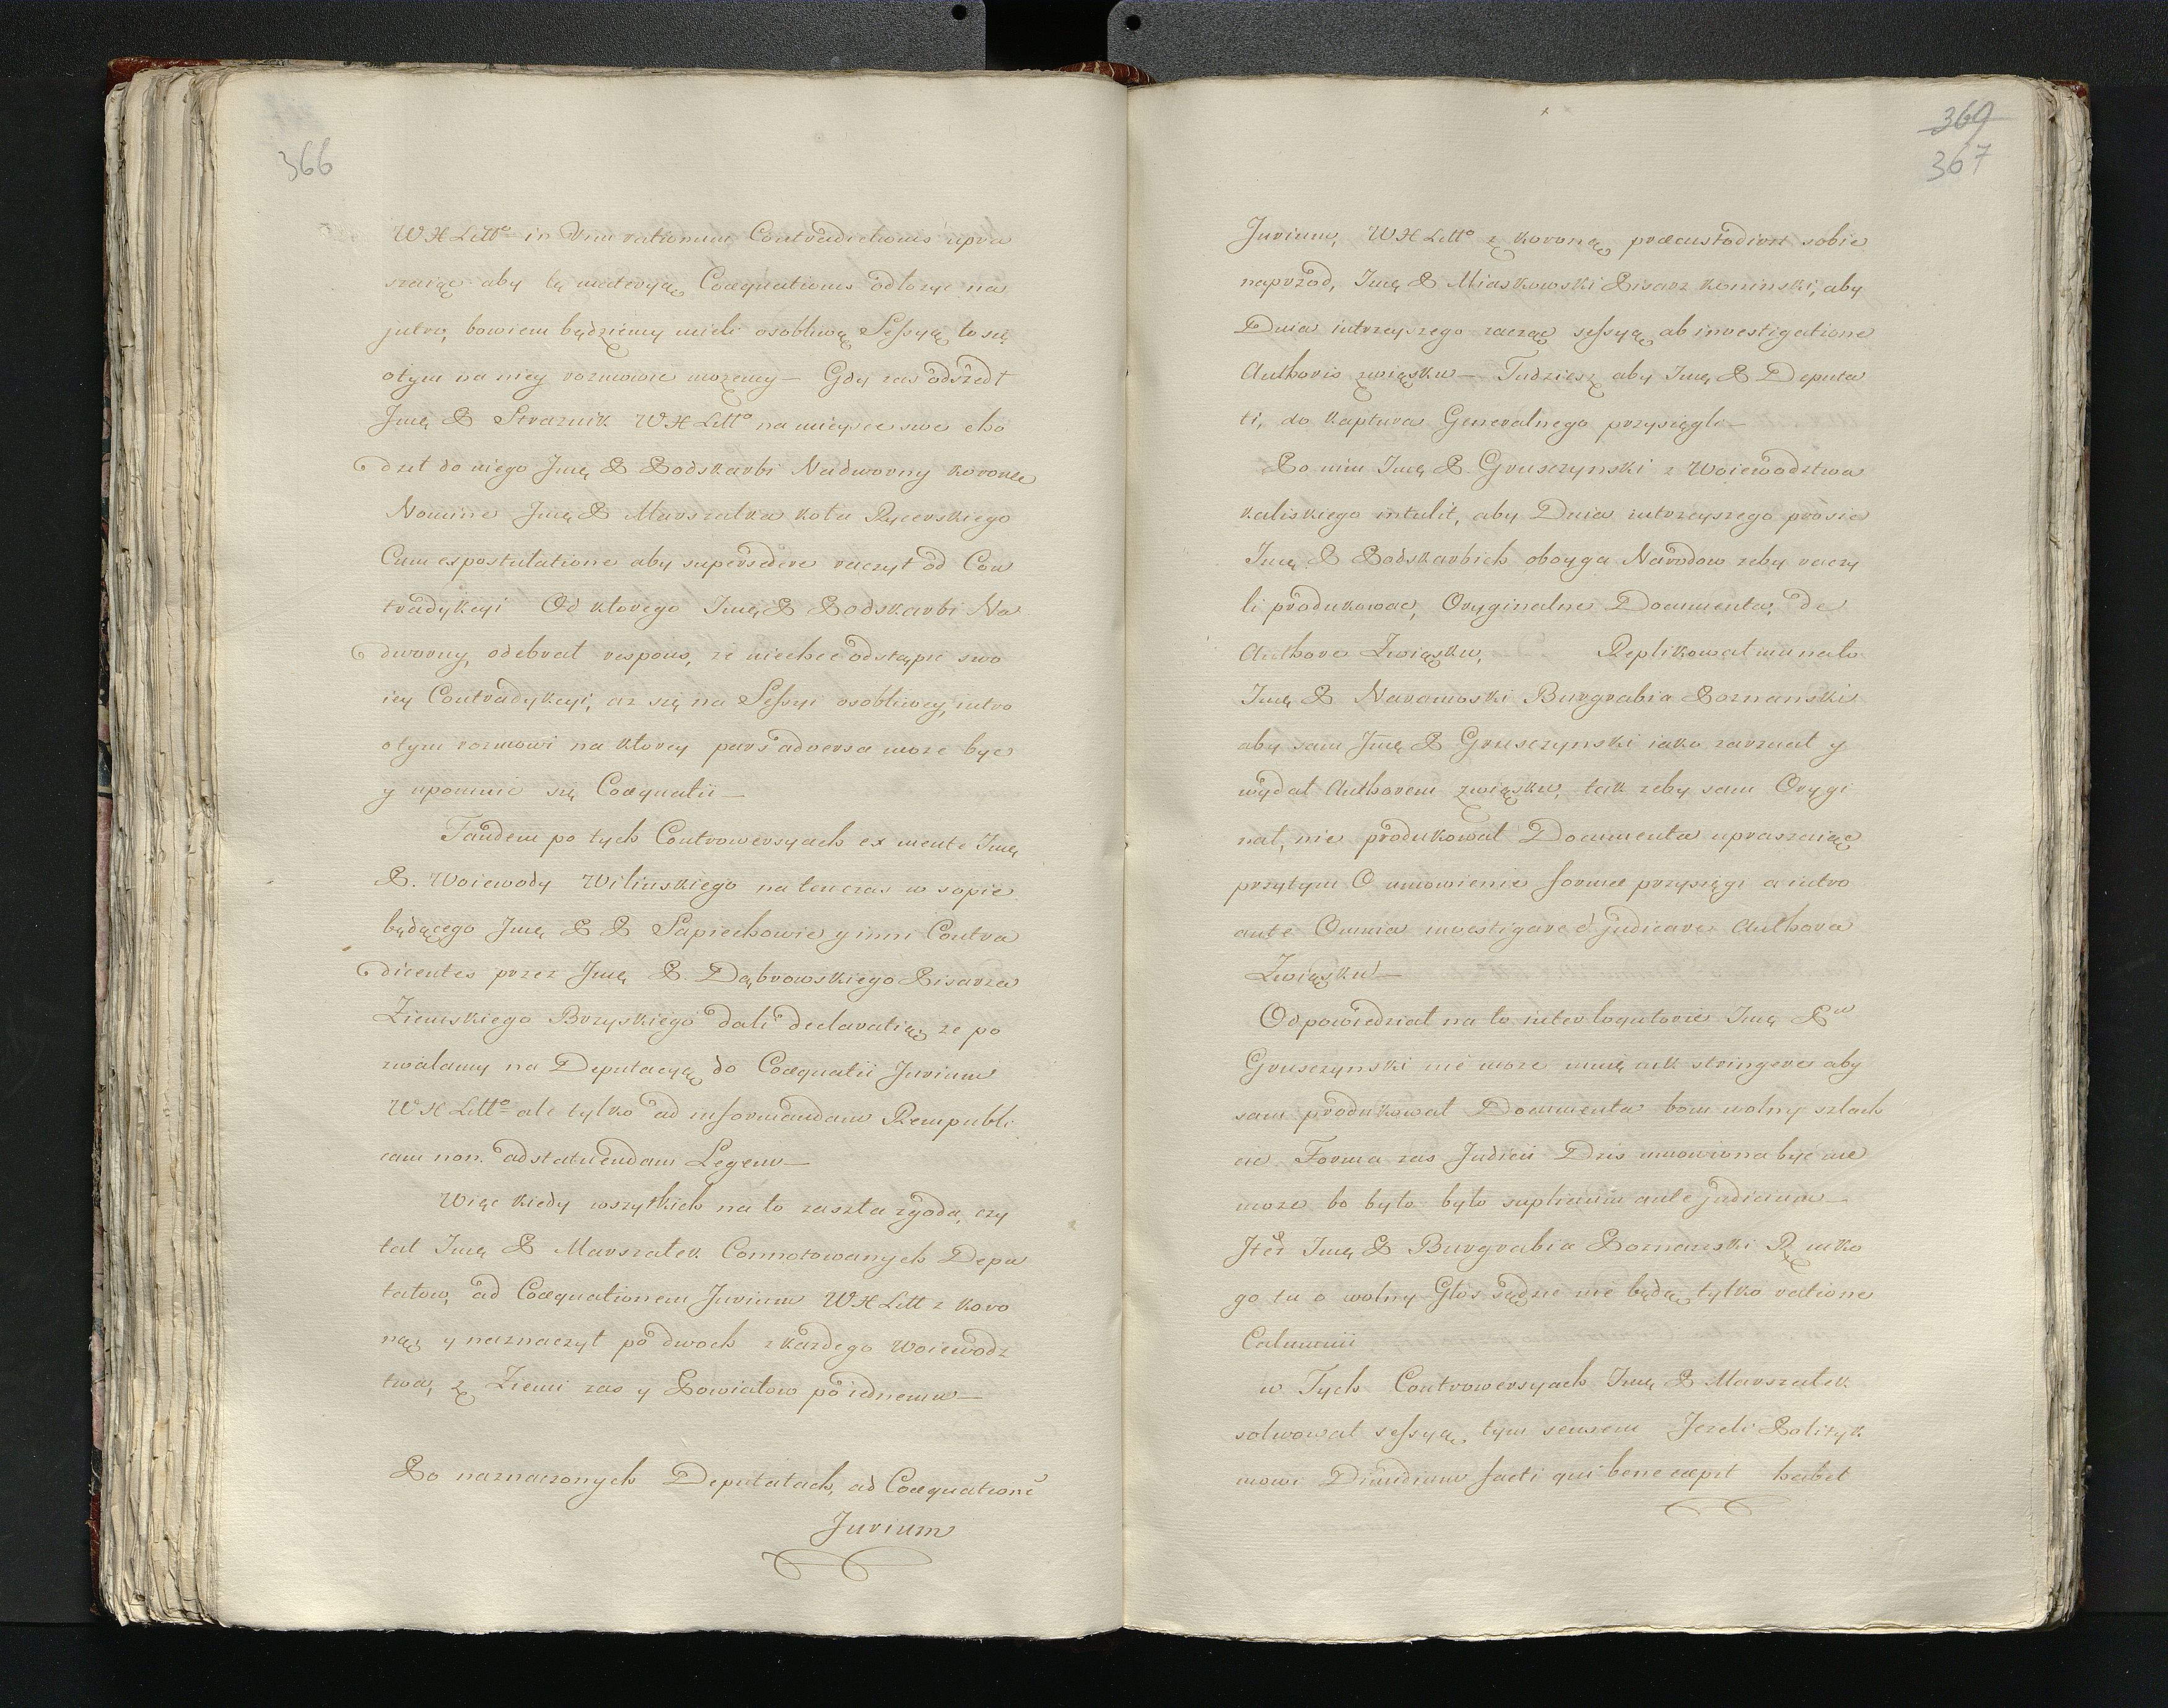 366
WXLitt° in Vim rationum Contradictionis upra
szaiąc aby tę materyią Coæquationis odłozyc na
jutro, bowiem będziemy mieli osobliwą Seſsyią to się
otym na niey rozmowic mozemy — Gdy zas odszedł
Jmę P Straznik WXLitt° na mieysce swe cho
dził do niego Jmę P Podskarbi Nadworny koronny
Nomine Jmę P Marszałka koła Rycerskiego
Cum expostulatione aby supersedere raczył od Con
tradykcyi Od ktorego Jmę P Podskarbi Na
dworny, odebrał respons, ze niechce odstąpic swo
iey Contradykcyi, az się na Seſsyi osobliwey, iutro
otym rozmowi na ktorey pars adversa moze byc
y upomnic się Coæquatii —
Tandem po tych Controwersyach ex mente Jmę
P. Woiewody Wilinskiego na ten czas w sopie
będącego Jmę P P Sapiechowie y inni Contra
dicentes przez Jmę P. Dąbrowskiego Pisarza
Ziemskiego Brzyskiego dali declaratią ze po
zwalamy na Deputacyią do Coæquatii Jurium
WXLitt° ale tylko ad informandam Rempubli
cam non ad statuendam Legem —
Więc kiedy wszytkich na to zaszła zgoda, czy
tał Jmę P Marszałek Connotowanych Depu
tatow, ad Coæquationem Jurium WXLitt z koro
ną, y naznaczył po dwoch z kazdego Woiewodz
twa, z Ziemi zas y Powiatow po iednemu —
Po naznaczonych Deputatach, ad Coæquatione
Jurium
369
367
Jurium, WXLitt° z koroną præcustodivit sobie
naprzod, Jmę P Miaskowski Pisarz koninski, aby
Dnia iutrzeyszego zacząc seſsyią ab investigatione
Authoris związku — Tudziesz aby Jmę P Deputa
ci, do kaptura Generalnego przysięgli —
Po nim Jmę P Grusczynski z Woiewodztwa
kaliskiego intulit, aby Dnia iutrzeyszego prosic
Jmę P Podskarbich oboyga Narodow zeby raczy
li produkowac, Oryginalne Documenta, de
Authore Związku, Replikował mu na to
Jmę P Naramoski Burgrabia Poznanski
aby sam Jmę P Grusczynski iako zarzucał y
wydał Authorem związku, tak zeby sam Orygi
nal, nie produkował Documenta upraszaiąc
przytym O umowienie formæ przysięgi a iutro
ante Omnia investigare et judicare Authora
Związku —
Odpowiedział na to interloqutorie Jmę Pn
Grusczynski nie moze mnię nik stringere aby
sam produkował Documenta bom wolny szlach
cic. Forma zas Judicii Dzis umowiona byc nie
moze bo by to było suplicium ante judicium —
Jmę P Burgrabia Poznanski niko
go tu o wolny Głos sądzic nie będą tylko ratione
Calumnii
w Tych Controwersyach Jmę P Marszałek
solwował seſsyią tym sensem Jezeli Polityk
mowi Dimidium facti qui bene cæpit habet